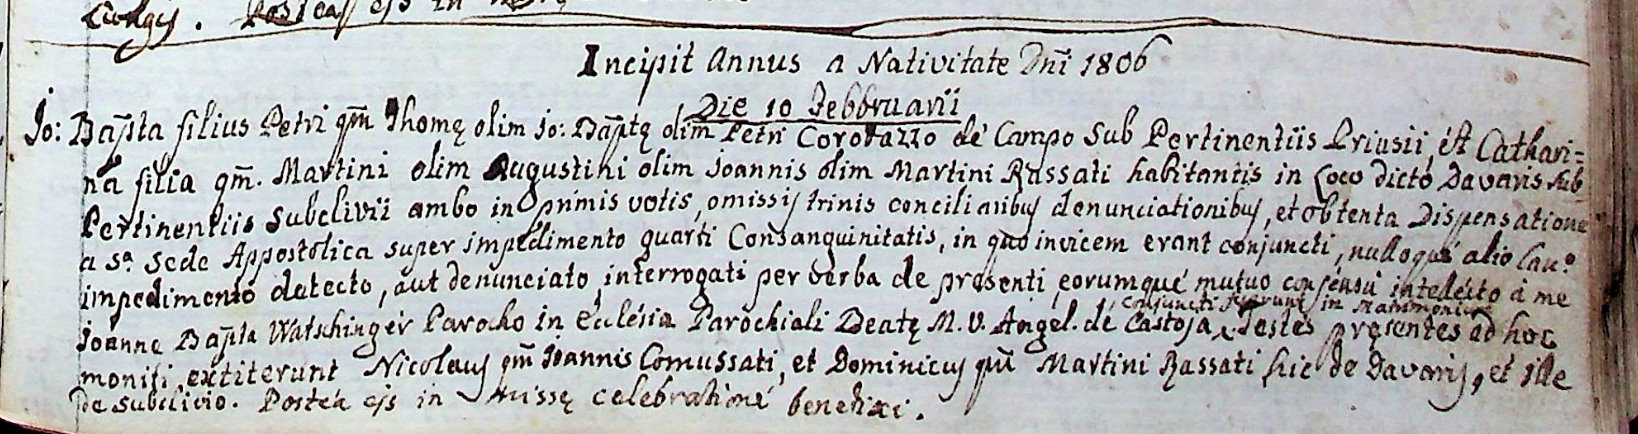 Incipit Annus a Nativitate Dnī 1806
Die 10 Febbruarii
Jo: Bap̄ta filius Petri qm̄ Thomę olim Jo: Bap̄tę olim Petri Corotazzo de Campo sub Pertinentiis Priusii, et Cathari=
na filia qm̄. Martini olim Augustini olim Joannis olim Martini Rassati habitantis in Loco dicto Davaris sub
Pertinentiis Subclivii ambo in primis votis, omissis trinis conciliaribus denunciationibus, et obtenta Dispensatione
a Sa. Sede Appostolica super impedimento quarti Consanguinitatis, in quo invicem erant conjuncti, nulloque alio Can.o
impedimento detecto, aut denunciato, interrogati per verba de presenti, eorumque mutuo consensu intelecto à me
conjuncti fuerunt in Matrimonium
Joanne Bap̄ta Watschinger Parocho in Eclesia Parochiali Beatę M. V. Angel. de Castoja, Testes presentes ad hoc
moniti extiterunt Nicolaus qm̄ Joannis Comussati, et Dominicus qm̄ Martini Rassati hic de Davaris, et ille
de Subclivio. Postea ejs in Missę celebratione benedixi.